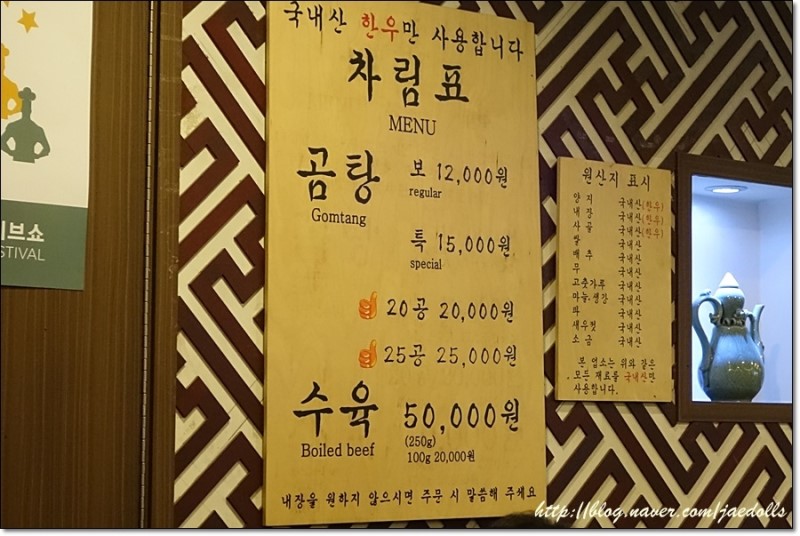 국내산 한우만 사용합니다
차림표
MENU
곰탕
Gomtang
보 12,000원
regular
특 15,000원
special
20공 20,000원
25공 25,000원
수육 50,000원
Boiled beef
(250g)
100g 20,000원
내장을 원하지 않으시면 주문 시 말씀해 주세요
원산지 표시
양지 국내산(한우)
내장 국내산(한우)
사골 국내산(한우)
쌀 국내산
배추 국내산
무 국내산
고춧가루 국내산
마늘,생강 국내산
파 국내산
새우젓 국내산
소금 국내산
본 업소는 위와 같은
모든 재료를 국내산만
사용합니다.
브쇼
STIVAL
http://blog.naver.com/jaedolls